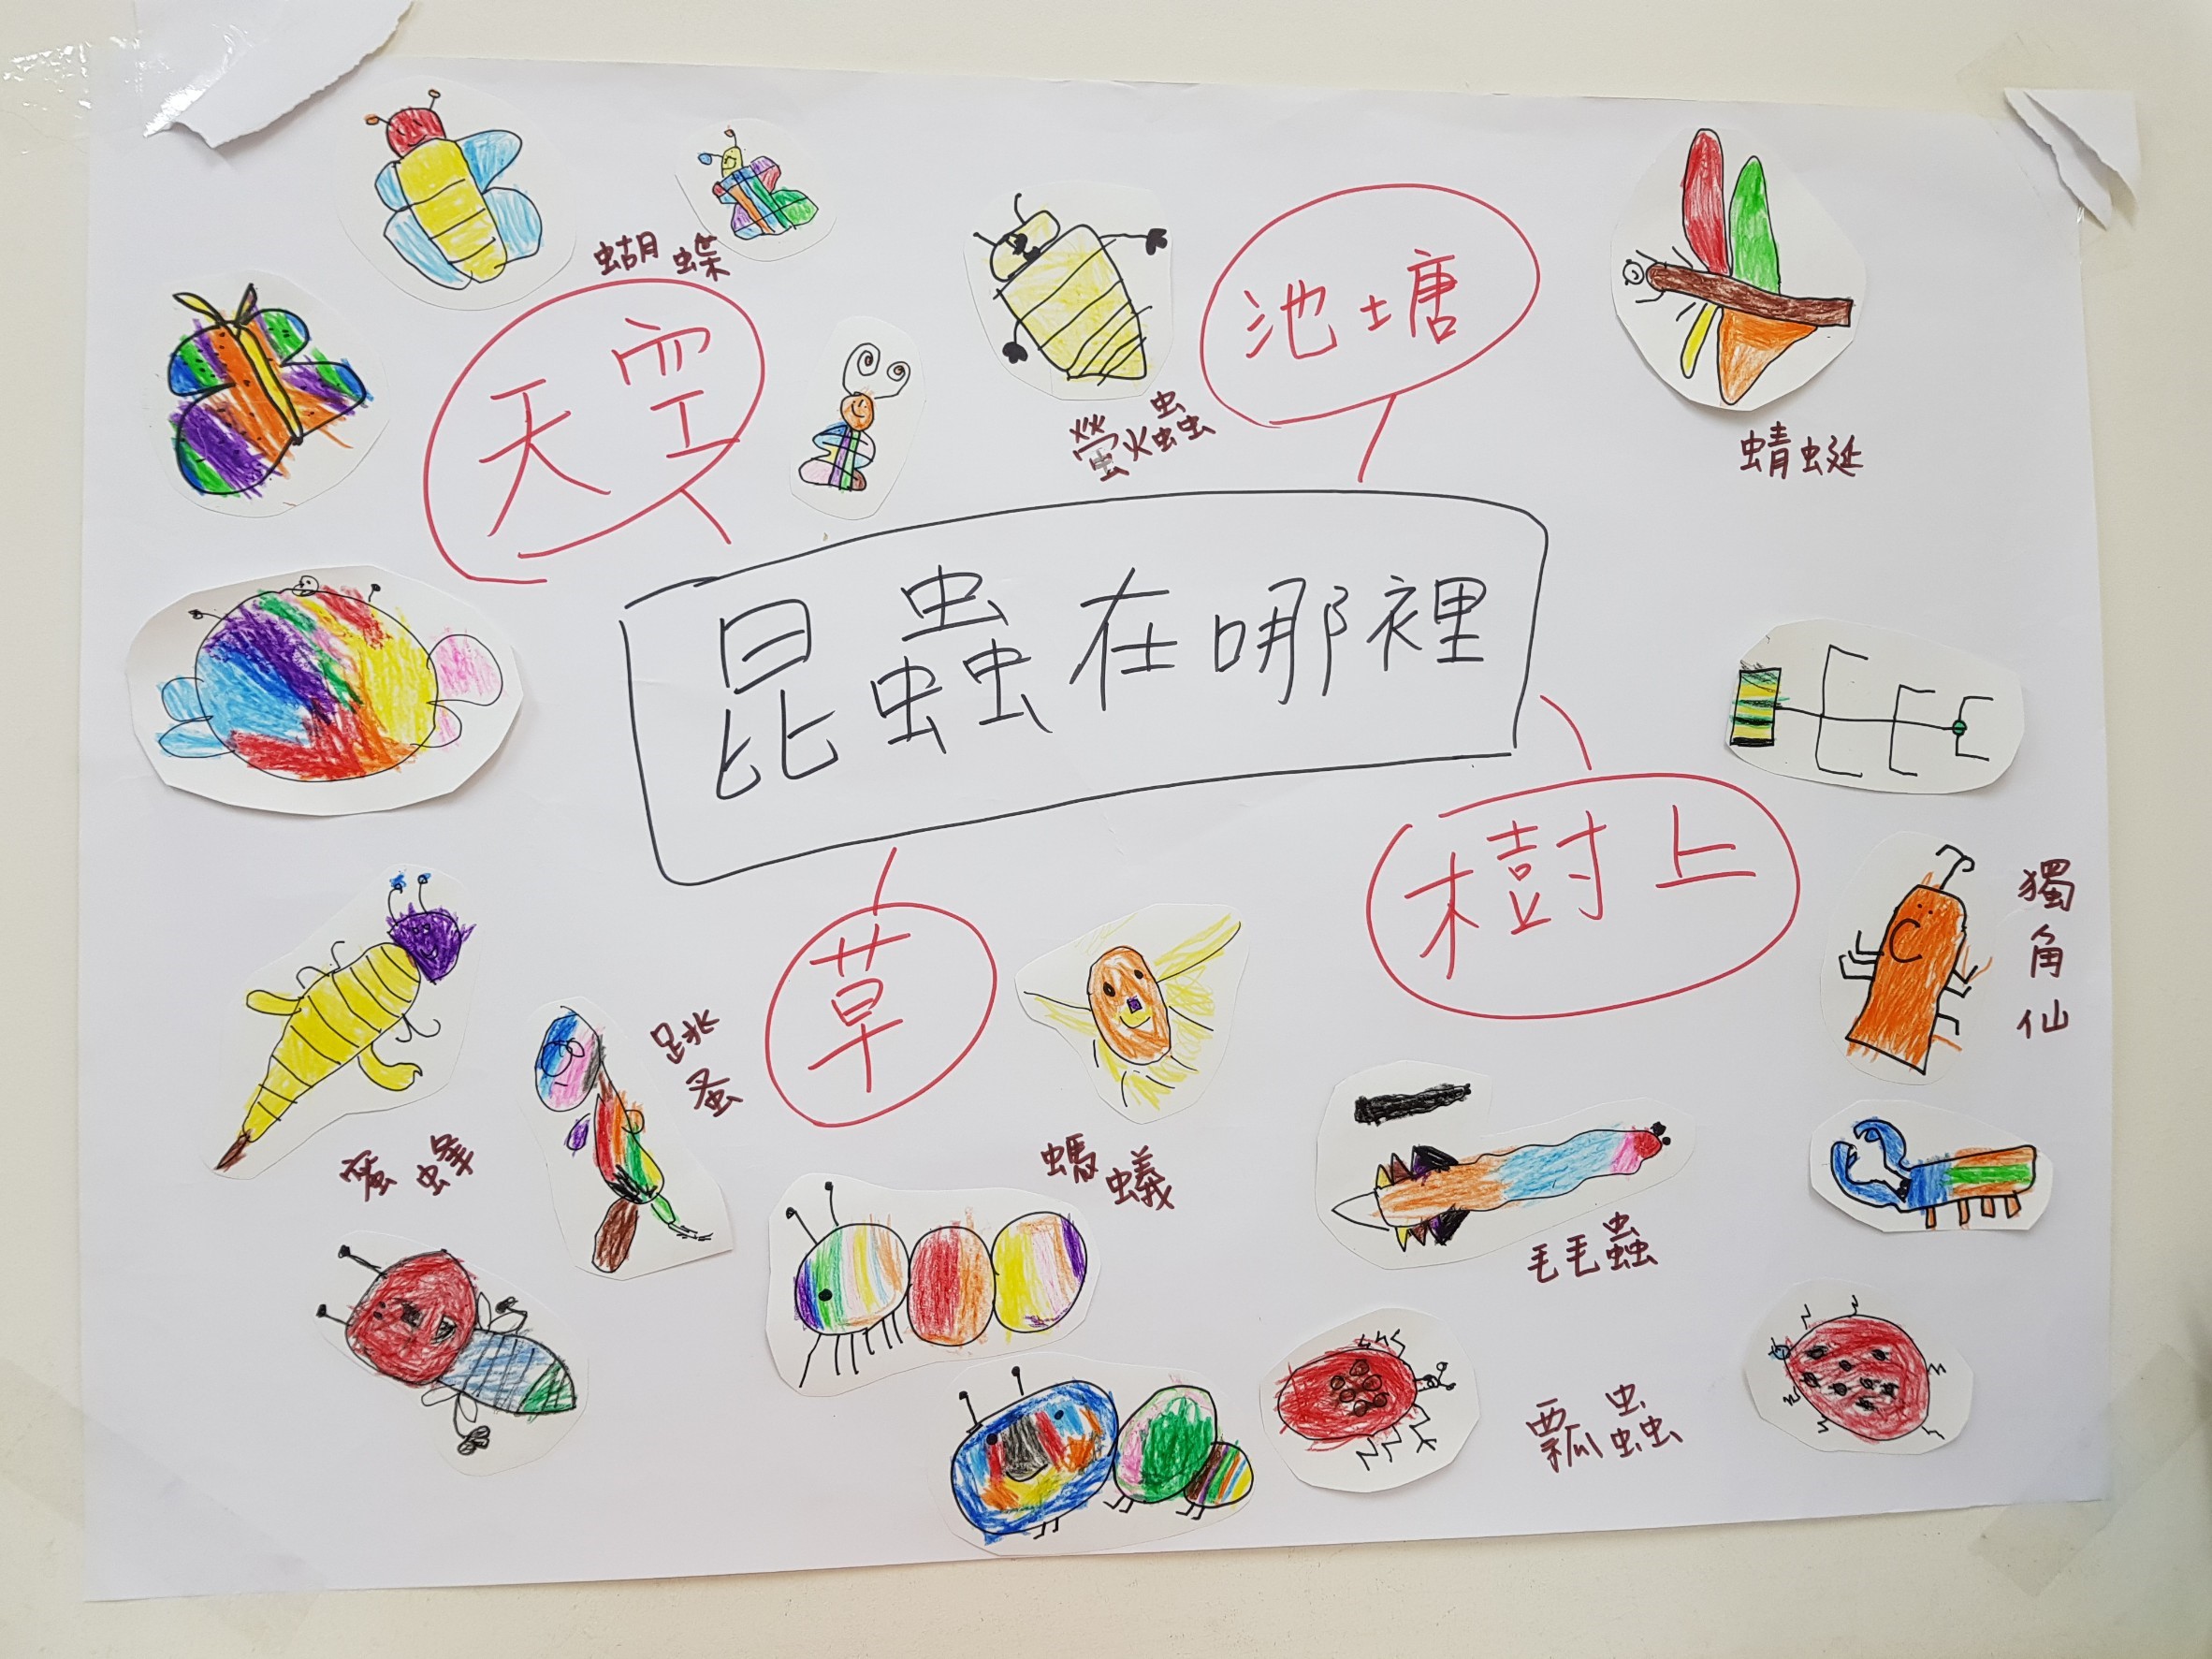 蝴蝶
天空
螢火蟲
池塘
蜻蜓
昆蟲在哪裡
樹上
獨角仙
草
跳蚤
蜜蜂
螞蟻
毛毛蟲
瓢蟲